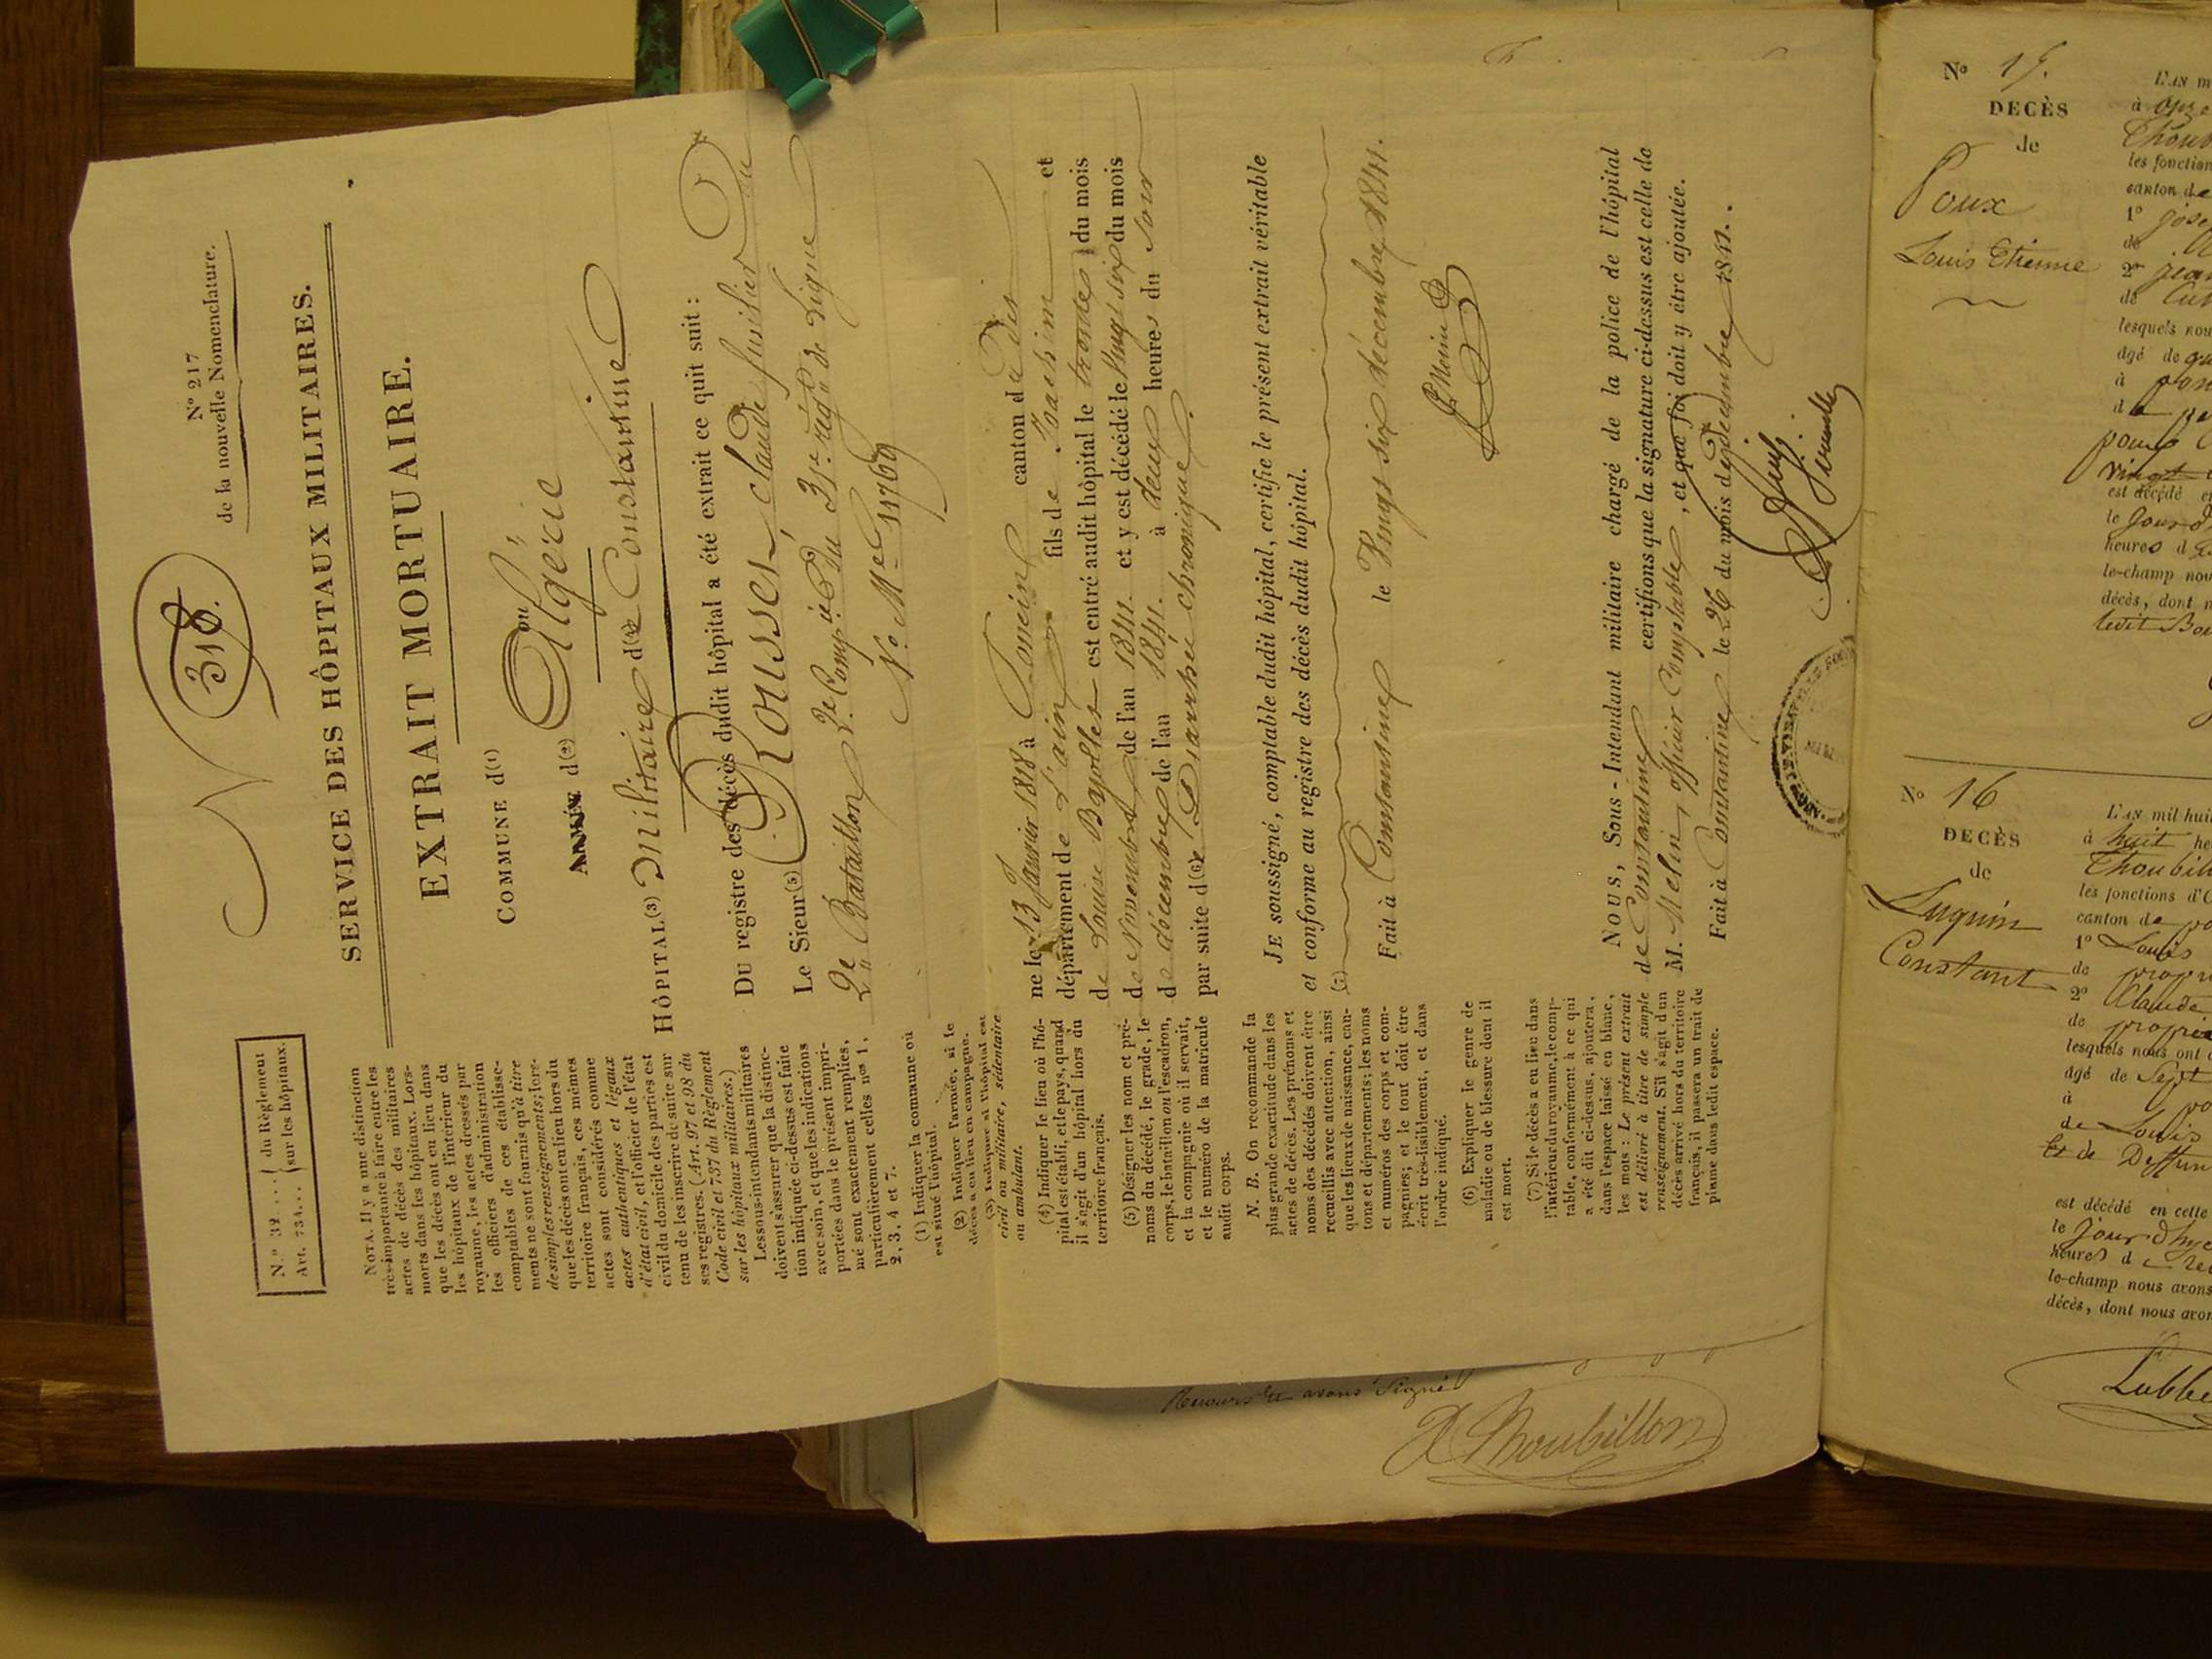 N.º 32 .... } du Réglement
Art. 734... } sur les hôpitaux.
N 318.
Nº 217
de la nouvelle Nomenclature.
SERVICE DES HÔPITAUX MILITAIRES.
EXTRAIT MORTUAIRE.
COMMUNE d(1)
ou
ARMÉE d(2) Algérie
HÔPITAL(3) Militaire d(4)e Constantine
DU registre des décès dudit hôpital a été extrait ce qui suit :
Le Sieur(5) Rousset, Claude fusilier au
2e Bataillon 2e Compie Du 31e régt de Ligne
No Mel 11769
né le 13 Janvier 1818 à canton de
département de l'ain fils de Joachim et
de Louise Bayolles est entré audit hôpital le trente du mois
de Novembre de l'an 1841. et y est décédé le Vingt six du mois
de décembre de l'an 1841. à deux heures du soir
par suite d(6)e Diarrhée chronique.
JE soussigné, comptable dudit hôpital, certifie le présent extrait véritable
et conforme au registre des décès dudit hôpital.
(7)
Fait à Constantine le Vingt six décembre 1841.
NOUS, Sous-Intendant militaire chargé de la police de l'hôpital
de Constantine certifions que la signature ci-dessus est celle de
M. Melin, officier Comptable, et que foi doit y être ajoutée.
Fait à Constantine le 26 du mois de décembre 1841.
NOTA. Il y a une distinction
très-importante à faire entre les
actes de décès des militaires
morts dans les hôpitaux. Lors-
que les décès ont eu lieu dans
les hôpitaux de l'intérieur du
royaume, les actes dressés par
les officiers d'administration
comptables de ces établisse-
mens ne sont fournis qu'à titre
de simples renseignements; lors-
que les décès ont eu lieu hors du
territoire français, ces mêmes
actes sont considérés comme
actes authentiques et légaux
d'état civil, et l'officier de l'état
civil du domicile des parties est
tenu de les inscrire de suite sur
ses registres. (Art. 97 et 98 du
Code civil et 737 du Règlement
sur les hôpitaux militaires.)
Les sous-intendants militaires
doivent s'assurer que la distinc-
tion indiquée ci-dessus est faite
avec soin, et que les indications
portées dans le présent impri-
mé sont exactement remplies,
particulièrement celles nos 1,
2, 3, 4 et 7.
(1) Indiquer la commune où
est situé l'hôpital.
(2) Indiquer l'armée, si le
décès a eu lieu en campagne.
(3) Indiquer si l'hôpital est
civil ou militaire, sédentaire
ou ambulant.
(4) Indiquer le lieu où l'hô-
pital est établi, et le pays, quand
il s'agit d'un hôpital hors du
territoire français.
(5) Désigner les nom et pré-
noms du décédé, le grade, le
corps, le bataillon ou l'escadron,
et la compagnie où il servait,
et le numéro de la matricule
audit corps.
N. B. On recommande la
plus grande exactitude dans les
actes de décès. Les prénoms et
noms des décédés doivent être
recueillis avec attention, ainsi
que les lieux de naissance, can-
tons et départements; les noms
et numéros des corps et com-
pagnies; et le tout doit être
écrit très-lisiblement, et dans
l'ordre indiqué.
(6) Expliquer le genre de
maladie ou de blessure dont il
est mort.
(7) Si le décès a eu lieu dans
l'intérieur du royaume, le comp-
table, conformément à ce qui
a été dit ci-dessus, ajoutera,
dans l'espace laissé en blanc,
les mots : Le présent extrait
est délivré à titre de simple
renseignement. S'il s'agit d'un
décès arrivé hors du territoire
français, il passera un trait de
plume dans ledit espace.
avons Signé
Thoubillon
Nº 15.
DECÈS
de
Poux
Louis Etienne
L'AN m
à onze
Thoub
les fonction
canton de
1º jose
de
2º jean
de Cul
lesquels nou
âgé de
à
est décédé e
le jour d
heures d
le-champ nou
décès, dont n
Nº 16
DECÈS
de
Luquin
Constant
L'AN mil hui
à huit he
Thoubill
les fonctions d'O
canton de po
1º Louis
de propri
2º Claude
de proprie
lesquels nous ont d
âgé de Sept
à po
de Louis
Et de
est décédé en cette
le jour d'hye
heures d
le-champ nous avons
décès, dont nous avon